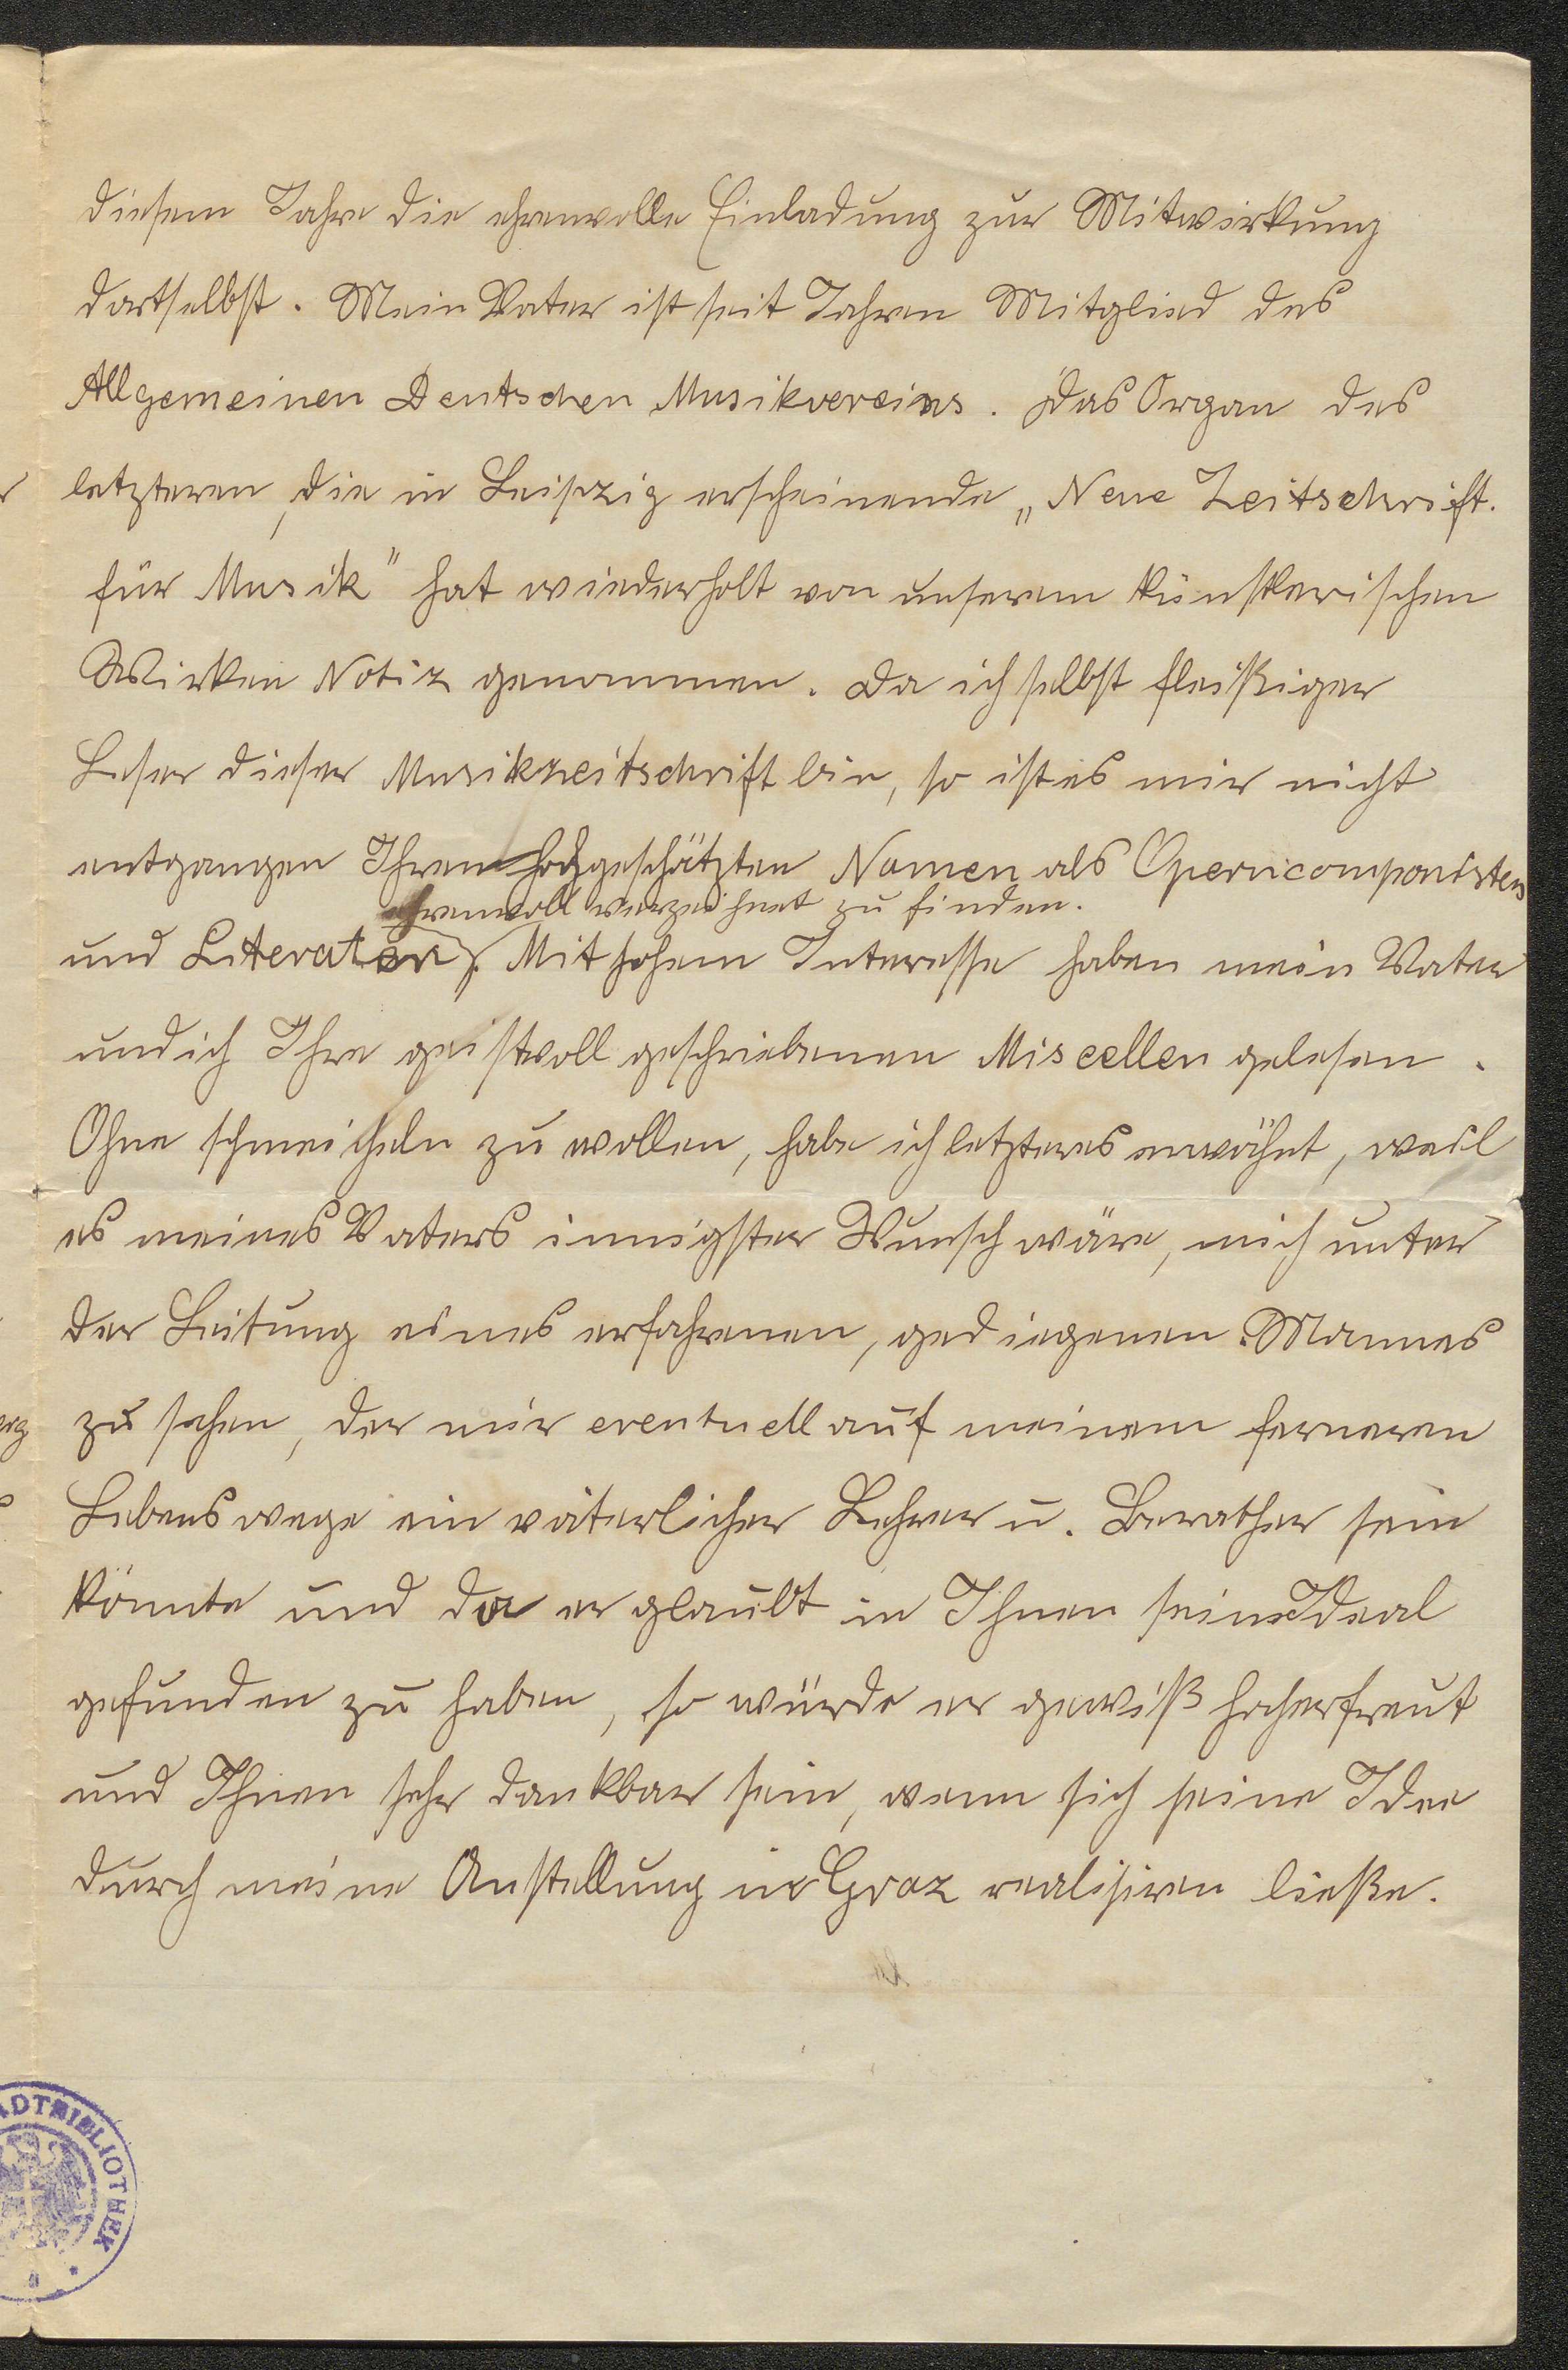 diesem Jahre die ehrenvolle Einladung zur Mitwirkung
dortselbst. Mein Vater ist seit Jahren Mitglied des
Allgemeinen Deutschen Musikvereins. Das Organ des
letzteren, die in Leipzig erscheinende „Neue Zeitschrift.
für Musik" hat wiederholt von unserem künstlerischen
Wirken Notiz genommen. Da ich selbst fleißiger
Leser dieser Musikzeitschrift bin, so ist es mir nicht
entgangen Ihren hochgeschätzten Namen als Operncomponisten
ehrenvoll verzeichnet zu finden.
und Literaten. Mit hohem Interesse haben mein Vater
und ich Ihre geistvoll geschriebenen Miscellen gelesen.
Ohne schmeicheln zu wollen, habe ich letzteres erwähnt, weil
es meines Vaters innigster Wunsch wäre, mich unter
der Leitung eines erfahrenen, gediegenen Mannes
zu sehen, der mir eventuell auf meinem ferneren
Lebenswege ein väterlicher Lehrer u. Berather sein
könnte und da er glaubt in Ihnen sein Ideal
gefunden zu haben, so würde er gewiß hocherfreut
und Ihnen sehr dankbar sein, wenn sich seine Idee
durch meine Anstellung in Graz realisiren ließe.
ADTBIBLIOTHEK